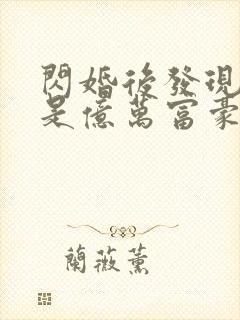 閃婚後發現
是億萬富豪
蘭薇薰